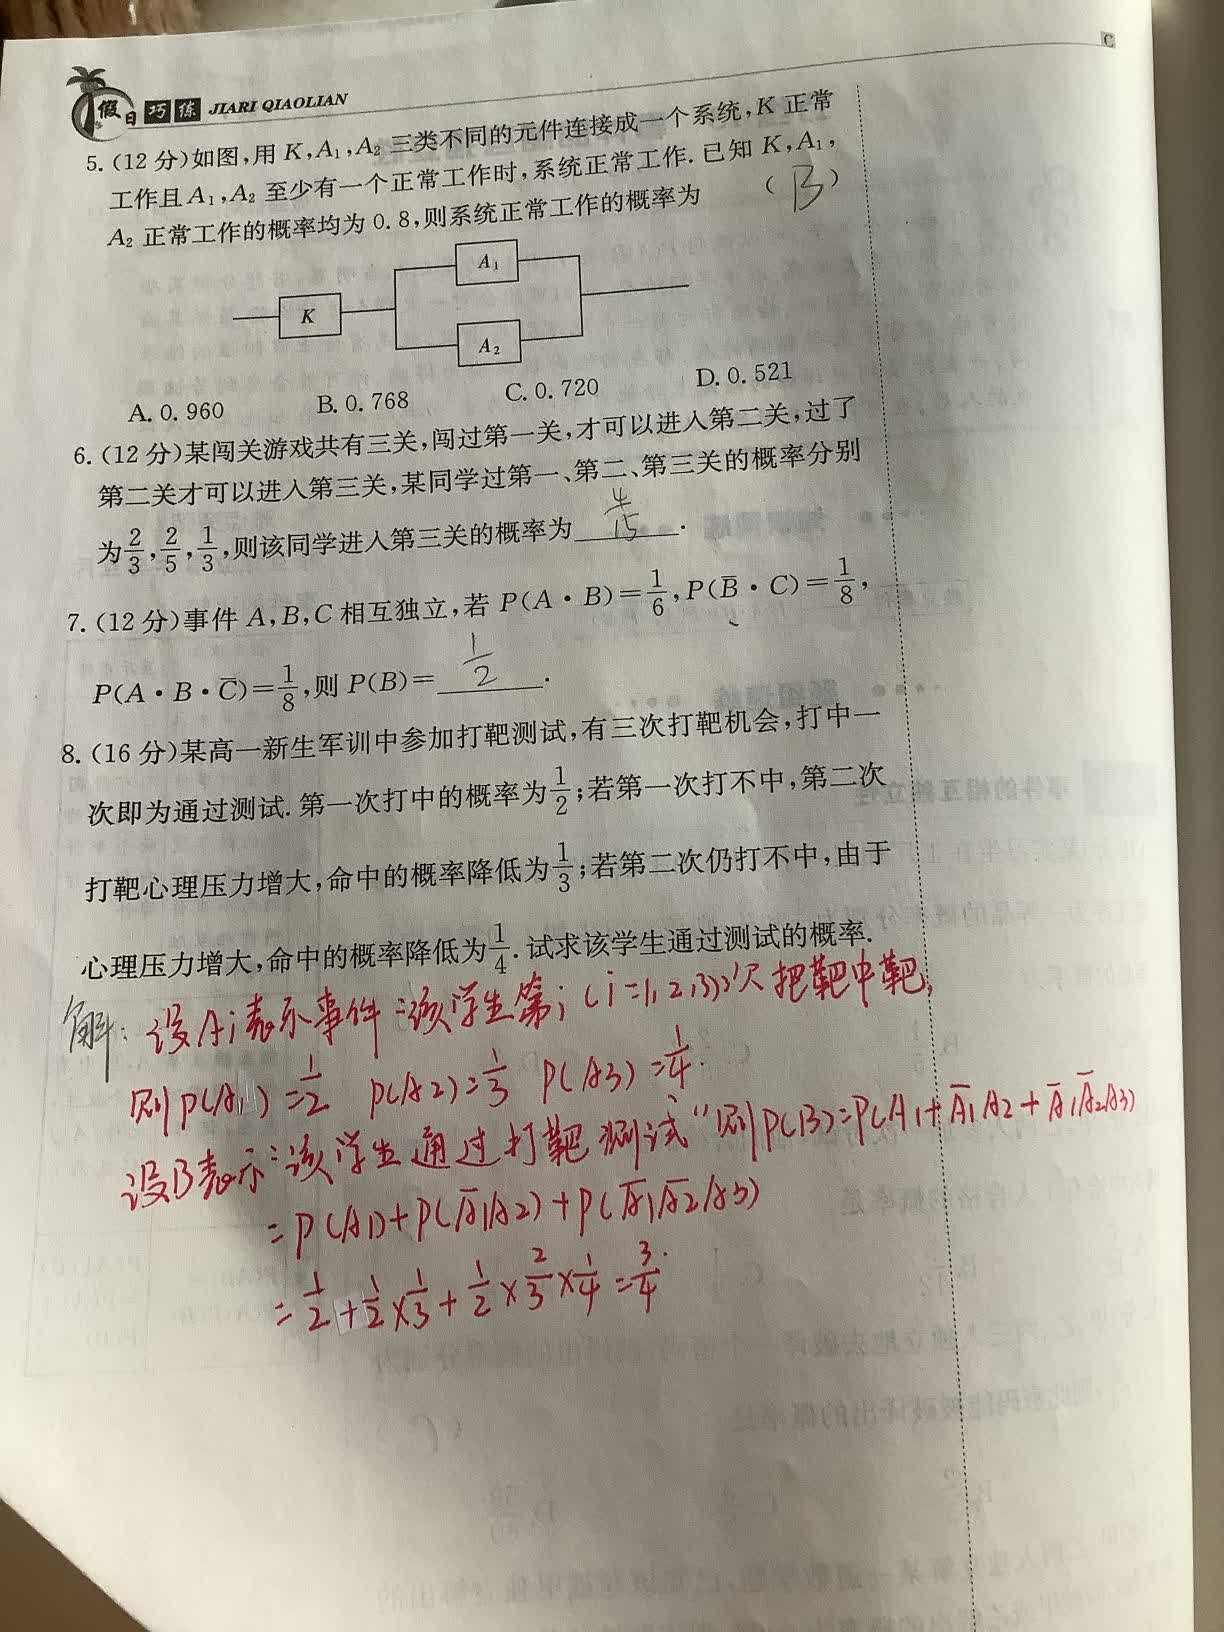 C
假日巧练 JIARI QIAOLIAN
5. (12 分)如图,用 K,A₁,A₂ 三类不同的元件连接成一个系统,K 正常
工作且 A₁,A₂ 至少有一个正常工作时,系统正常工作. 已知 K,A₁,
A₂ 正常工作的概率均为 0.8,则系统正常工作的概率为 ( B )
A₁
K
A₂
A. 0.960 B. 0.768 C. 0.720 D. 0.521
6. (12 分)某闯关游戏共有三关,闯过第一关,才可以进入第二关,过了
第二关才可以进入第三关,某同学过第一、第二、第三关的概率分别
为 2/3, 2/5, 1/3,则该同学进入第三关的概率为 4/15 .
7. (12 分)事件 A,B,C 相互独立,若 P(A·B)=1/6,P(B̄·C)=1/8,
P(A·B·C̄)=1/8,则 P(B)= 1/2 .
8. (16 分)某高一新生军训中参加打靶测试,有三次打靶机会,打中一
次即为通过测试. 第一次打中的概率为 1/2;若第一次打不中,第二次
打靶心理压力增大,命中的概率降低为 1/3;若第二次仍打不中,由于
心理压力增大,命中的概率降低为 1/4. 试求该学生通过测试的概率.
解: 设Ai表示事件"该学生第i(i=1,2,3)次把靶中靶,
则P(A1)=1/2 P(A2)=1/3 P(A3)=1/4.
设B表示"该学生通过打靶测试"则P(B)=P(A1+Ā1A2+Ā1Ā2A3)
=P(A1)+P(Ā1A2)+P(Ā1Ā2A3)
=1/2+1/2×1/3+1/2×2/3×1/4=3/4.